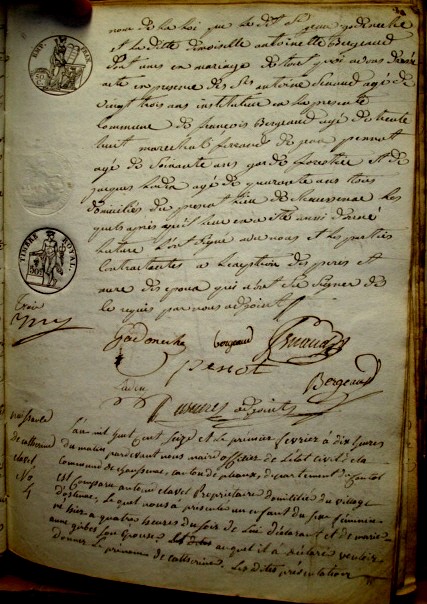 nom de la loi que le dit Sr jean godeneche
et la ditte demoiselle antoinette Bergeaud
sont unis en mariage de tout quoi avons dressé
acte en presence des Srs antoine Senaud agé de
vingt trois ans instituteur en la presente
commune de francois Bergeaud agé de trente
huit marechal ferrand de jean pennot
agé de Soixante ans garde forestier et de
jacques Ladu agé de quarante ans tous
domiciliés du present lieu de chaussenac les
quels après qu'il leur en a été aussi donné
lecture l'ont signé avec nous et les parties
contractantes a lexception des peres et
mere des epoux qui n'ont sçu signer de
le requis par nous adjoint
EMP. FRAN.
TIMBRE ROYAL
godeneche bergeaud Senaud
penot
Ladu Bergeaud
adjoint
naissance
de catherine
clavel
No
4
L'an mil huit cent seize et le premier fevrier à dix heures
du matin pardevant nous maire officier de l'etat civil de la
commune de chaussenac, canton de pleaux, departement du cantal
est comparu antoine clavel proprietaire domicilié du village
d'ostenac, lequel nous a presenté un enfant du sexe feminin
né hier a quatre heures du soir de lui declarant et de marie
anne gibes son epouse auquel il a declaré vouloir
donner le prenome de catherine, les dites presentation